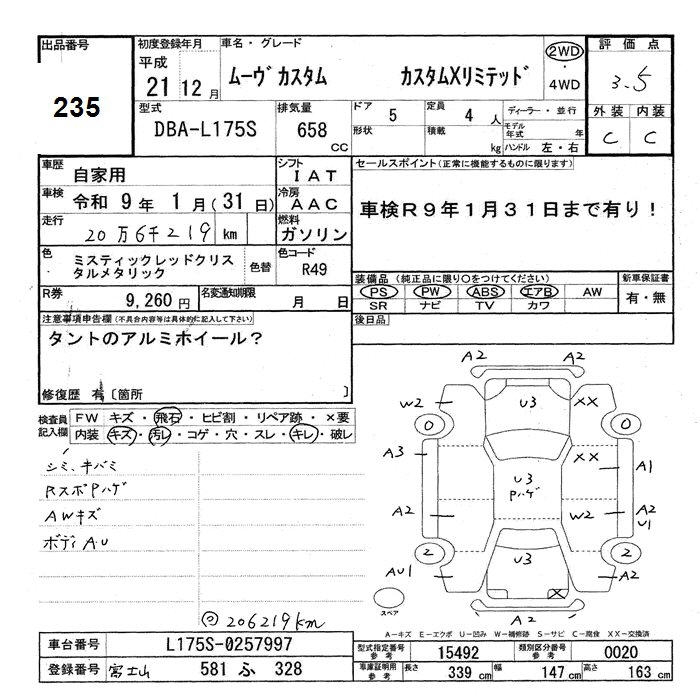 出品番号
235
初度登録年月
平成
21 12 月
車名・グレード
ムーヴカスタム カスタムXリミテッド
2WD
・
4WD
評価点
3.5
型式
DBA-L175S
排気量
658 CC
ドア 5
形状
定員 4 人
積載 kg
ディーラー・並行
モデル年式 年
ハンドル 左・右
外装 内装
C C
車歴 自家用
車検 令和 9 年 1 月 (31 日)
走行 20万6千219 km
シフト IAT
冷房 AAC
燃料 ガソリン
セールスポイント(正常に機能するものに限ります)
車検R9年1月31日まで有り!
色 ミスティックレッドクリスタルメタリック
色替
色コード R49
R券 9,260 円
名変通知期限 月 日
装備品 (純正品に限り○をつけてください)
PS PW ABS エアB AW
SR ナビ TV カワ
新車保証書
有・無
後日品
注意事項申告欄(不具合内容等は具体的に記入して下さい)
タントのアルミホイール?
修復歴 有〔箇所 〕
検査員記入欄
FW キズ・飛石・ヒビ割・リペア跡・×要
内装 キズ・汚レ・コゲ・穴・スレ・キレ・破レ
シミ、キバミ
RスポPハゲ
AWキズ
ボディAU
206219km
A2 A2
U3
W2 XX
0 0
A3 XX A1
U3
Pハゲ
A2 W2 A2
U1
2 2
U3
AU1 A2
X
A2
スペア
A-キズ E-エクボ U-凹み W-補修跡 S-サビ C-腐食 XX-交換済
車台番号 L175S-0257997
登録番号 富士山 581 ふ 328
型式指定番号 参考 15492
類別区分番号 参考 0020
車庫証明用 参考 長さ 339 cm 幅 147 cm 高さ 163 cm